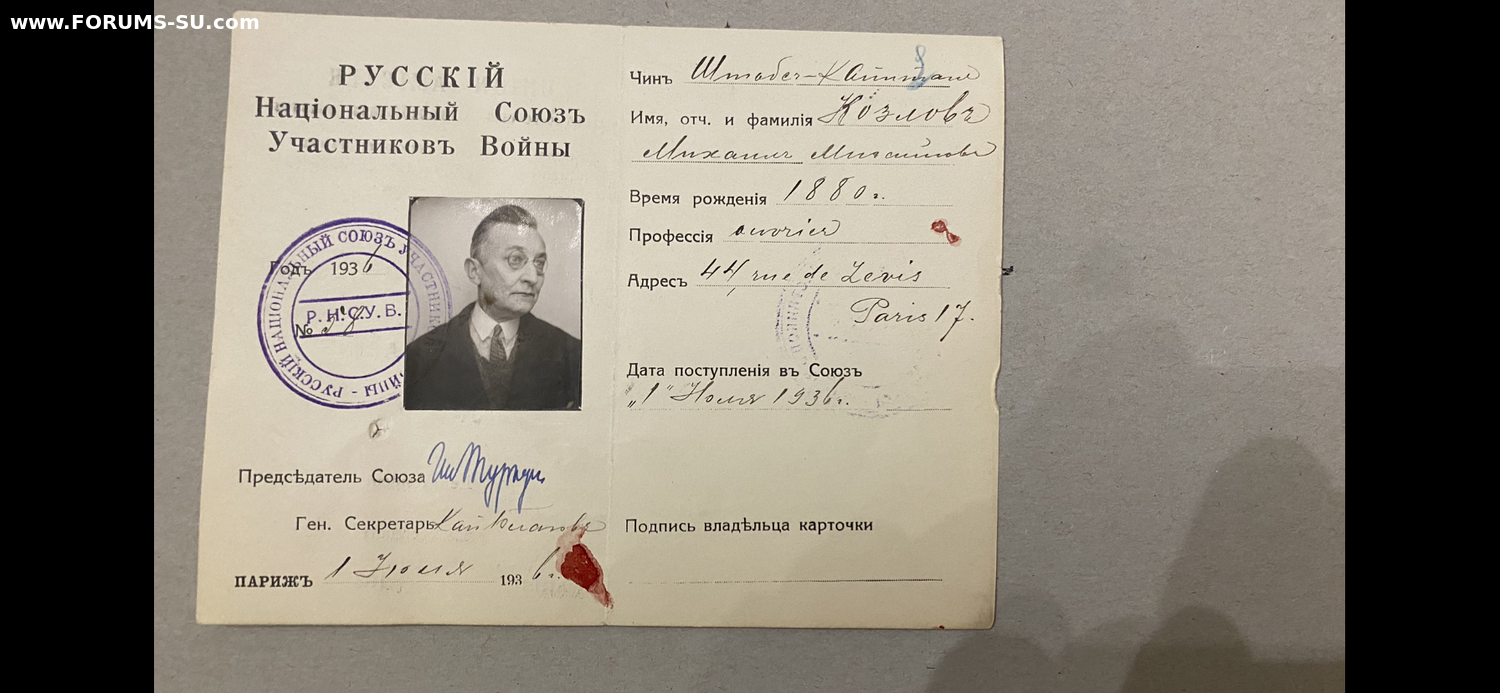 www.FORUMS-SU.com
РУССКІЙ
Національный Союзъ
Участниковъ Войны
РУССКІЙ НАЦІОНАЛЬНЫЙ СОЮЗЪ УЧАСТНИКО ЙНЫ
Годъ 1936
Р. Н. С. У. В.
№
Предсѣдатель Союза
Ген. Секретарь
ПАРИЖЪ 1 Іюля 1936г.
Чинъ Штабсъ-Капитанъ
8
Имя, отч. и фамилія Козловъ
Михаилъ Михайловъ
Время рожденія 1880г.
Профессія ouvrier
Адресъ 44, rue de Levis
Paris 17.
Дата поступленія въ Союзъ
„1" Іюля 1936г.
Подпись владѣльца карточки